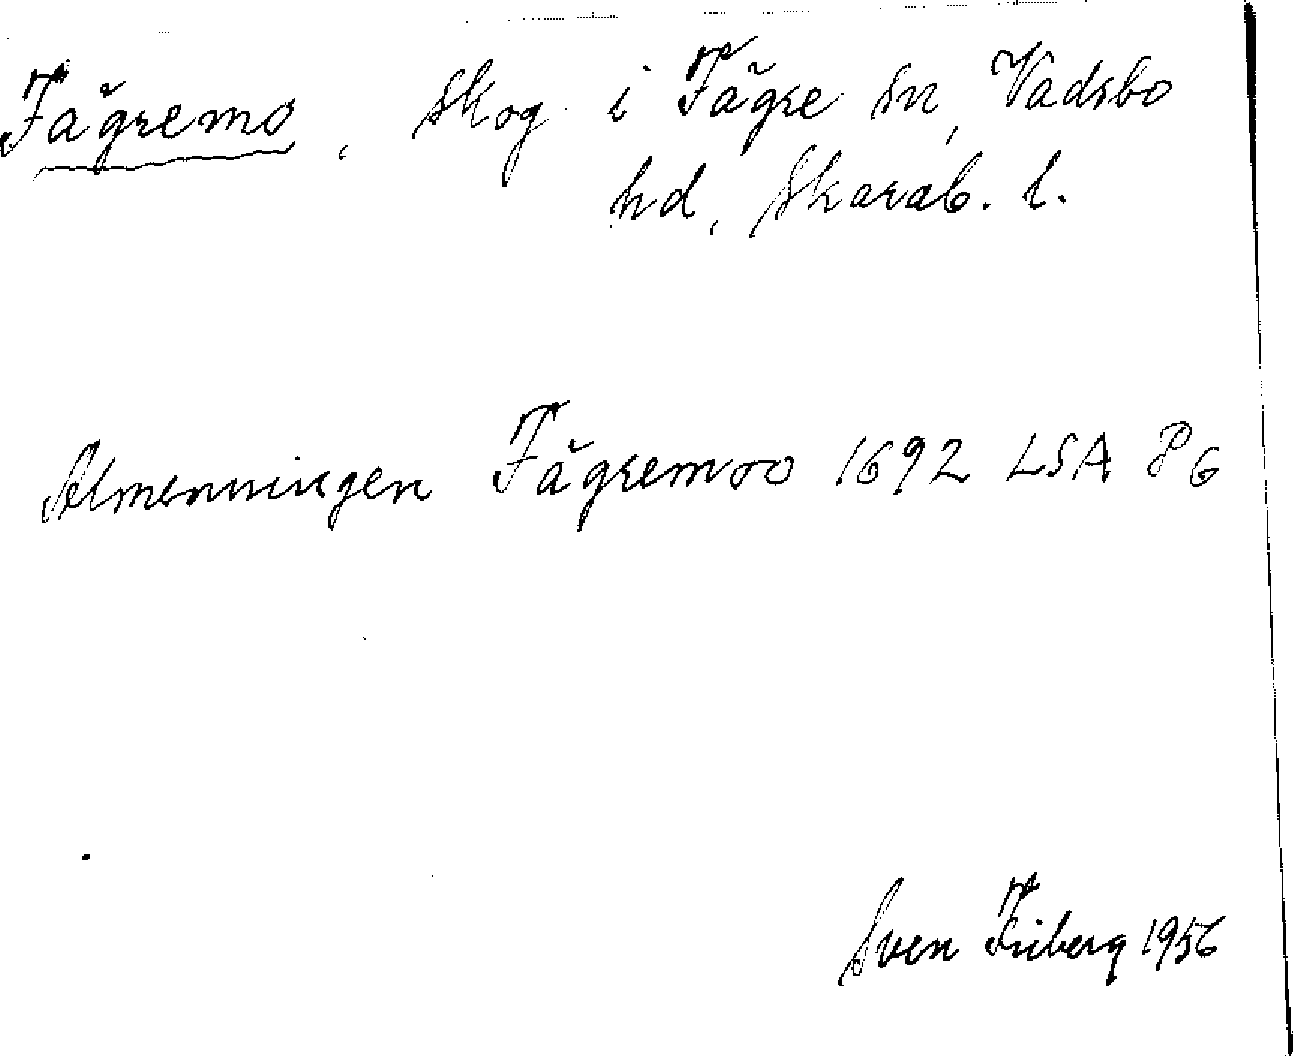 Fägremo, Skog i Fägre sn, Vadsbo
hd, Skarab. l.
Almenningen Fägremoo 1692 LSA P6
Sven Friberg 1956